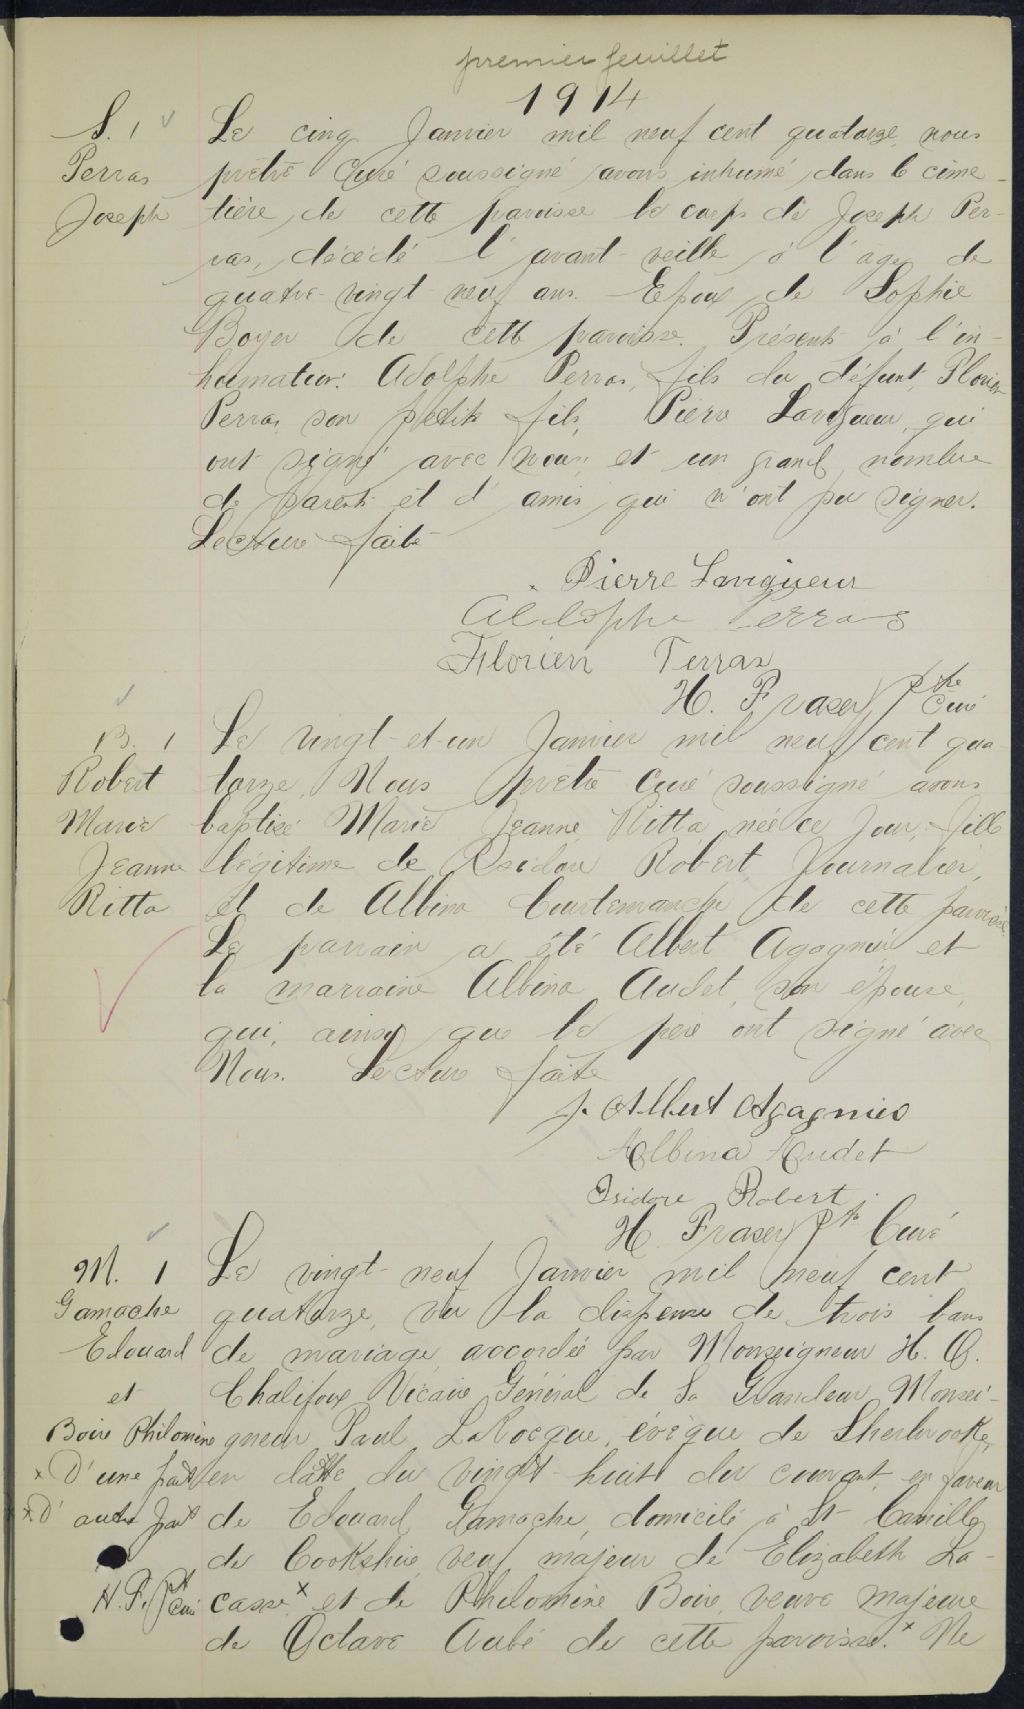 premier feuillet
1914
S. 1
Perras
Joseph
Le cinq Janvier mil neuf cent quatorze, nous
prêtre Curé soussigné avons inhumé dans le cime-
tière de cette paroisse le corps de Joseph Per-
ras, décédé l'avant-veille à l'age de
quatre-vingt-neuf ans. Epoux de Sophie
Boyer de cette paroisse. Présents à l'in-
humation: Adolphe Perras, fils du défunt, Florien
Perras son petit fils, Pierre Lavigueur, qui
ont signé avec nous et un grand nombre
de parents et d'amis qui n'ont pu signer.
Lecture faite
Pierre Lavigueur
Adolphe Perras
Florien Perras
H. Fraser Ptre Curé
B. 1
Robert
Marie
Jeanne
Ritta
Le vingt-et-un Janvier mil neuf cent qua-
torze, Nous prêtre Curé soussigné avons
baptisé Marie Jeanne Ritta née ce jour, fille
légitime de Isidore Robert Journalier,
et de Albina Courtemanche de cette paroisse.
Le parrain a été Albert Agagnier et
la marraine Albina Audet, son épouse,
qui, ainsi que le père ont signé avec
Nous. Lecture faite
J. Albert Agagnier
Albina Audet
Isidore Robert.
H. Fraser Ptr Curé
M. 1
Gamache
Edouard
et
Boire Philomine
x D'une part
x x D'autre part
H. F. Pt Curé
Le vingt-neuf Janvier mil neuf cent
quatorze, vu la dispense de trois bans
de mariage accordée par Monseigneur H. O.
Chalifoux Vicaire Général de Sa Grandeur Monsei-
gneur Paul LaRocque, évêque de Sherbrooke,
en datte du vingt-huit du courant, en faveur
de Edouard Gamache, domicilié à St-Camille
de Cookshire, veuf majeur de Elizabeth La-
casse x et de Philomine Boire, veuve majeure
de Octave Aubé de cette paroisse. x Ne